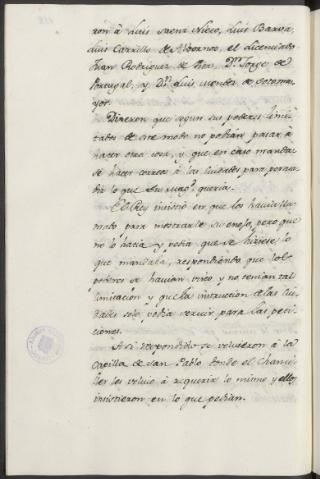 ron à Luis Saenz Nieto, Luis Barva,
Luis Carrillo de Albornoz, el Licenciado
Juan Rodriguez de Pisa, Dn. Jorge de
Portugal, y Dn. Luis Mendez de Sotoma
yor.
Dixeron que segun sus poderes limi
tados de este modo no podian pasar à
hacer otra cosa, y que en caso mandase
se hacer correos à las Ciudades para persua
dir lo que Su Magd. queria.
El Rey insistió en que los havia lla
mado para mostrarle su enojo, pero que
no lo hacia y pedia que se hiciese lo
que mandaba, respondiendo que los
poderes se havian visto y no tenian tal
limitacion y que la instruccion de las Ciu
dades solo podia servir para las peti
ciones.
Asi respondido se volvieron à la
Capilla de San Pablo donde el Chanci
ller les volvió à requerir lo mismo y ellos
insistieron en lo que pedian.